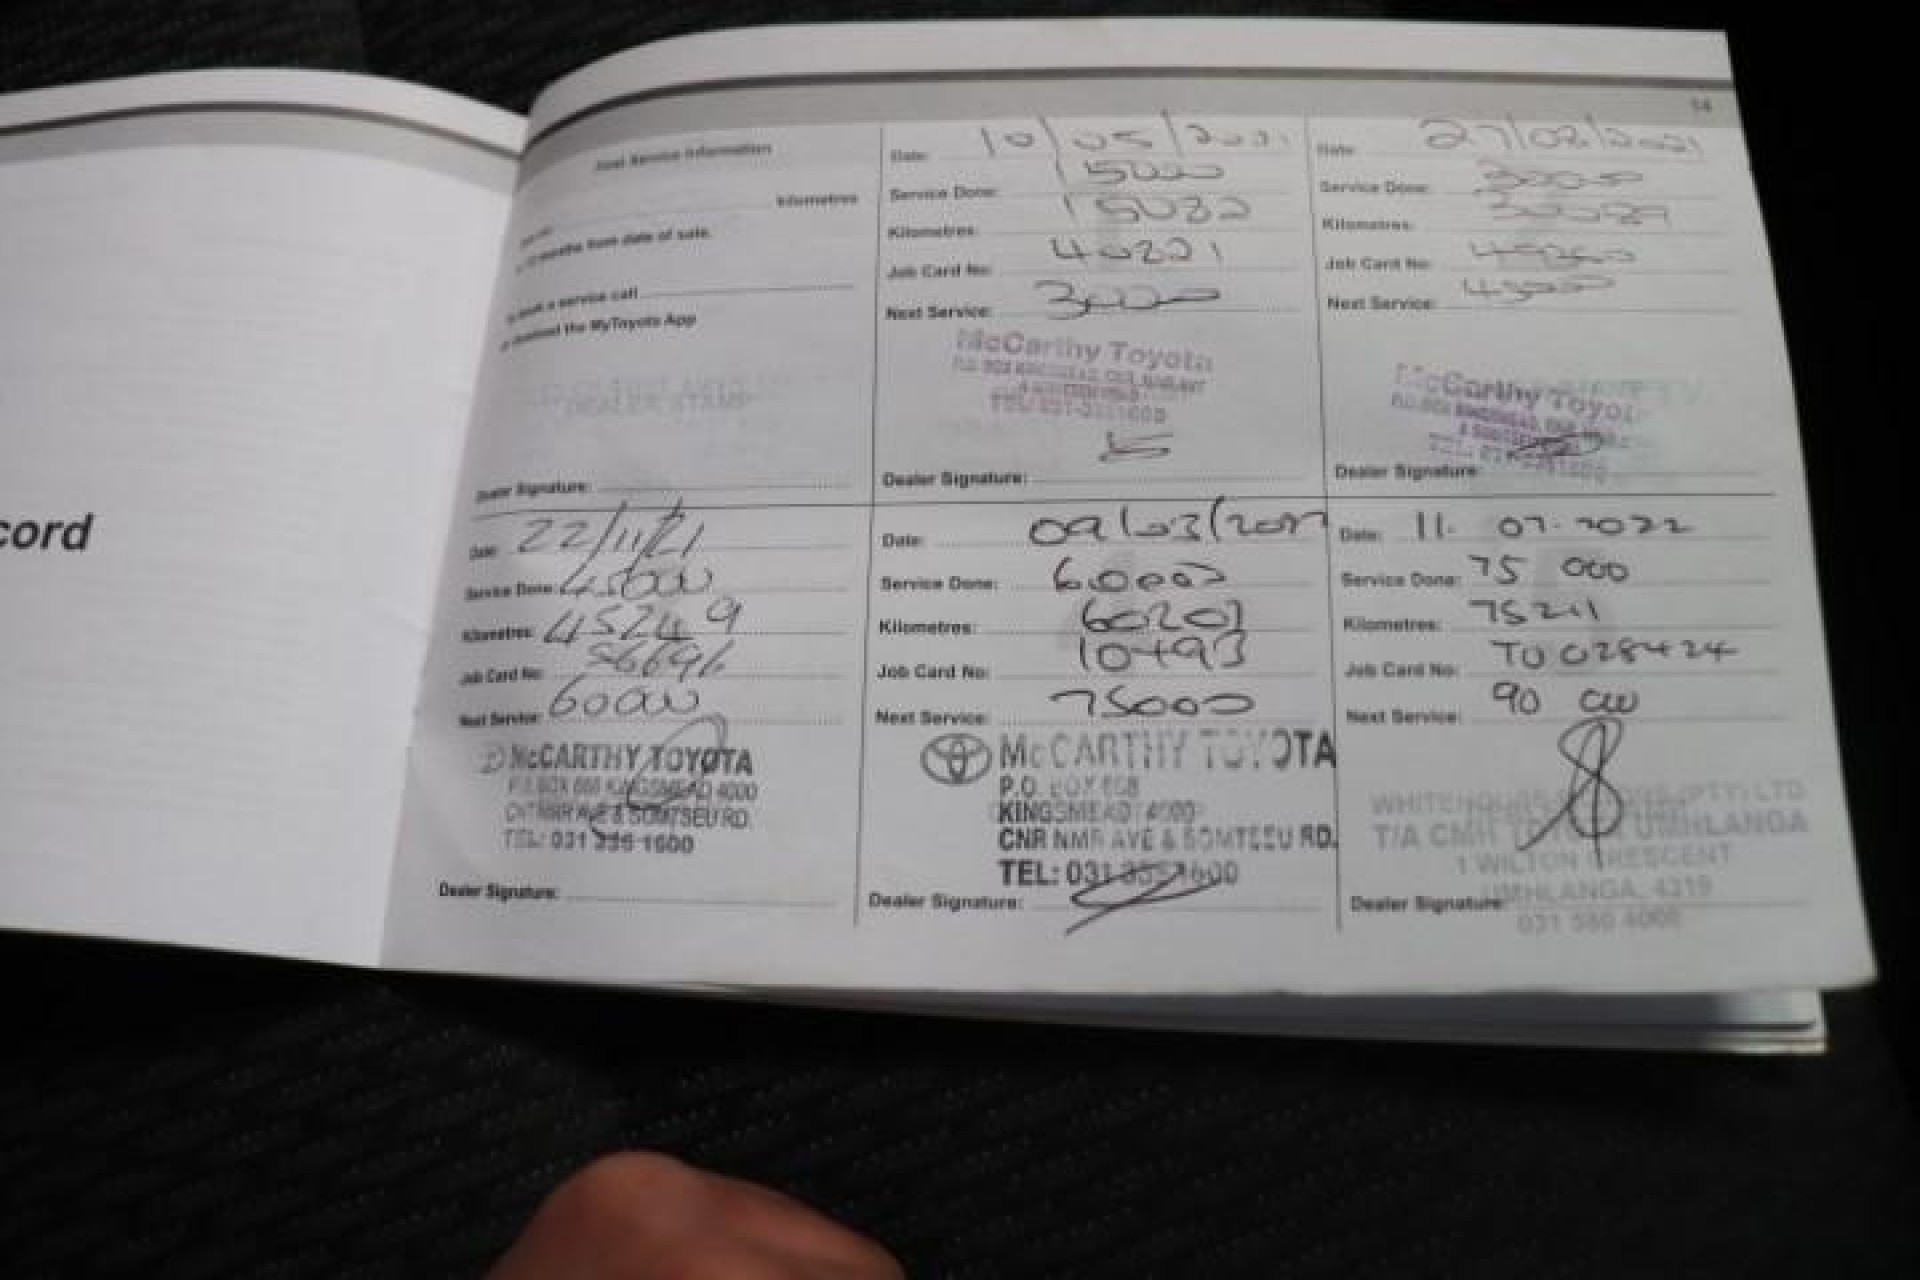 cord
14
Service Information
kilometres
months from date of sale.
a service call
the MyToyota App
DEALER STAMP
Dealer Signature:
Date: 10/05/2021
Service Done: 15000
Kilometres:
Job Card No: 40821
Next Service: 30000
McCarthy Toyota
Dealer Signature:
Date: 27/08/2021
Service Done: 30000
Kilometres:
Job Card No:
Next Service: 45000
McCarthy Toyota
Dealer Signature:
Date: 22/11/21
Service Done: 45000
Kilometres: 45249
Job Card No: 56696
Next Service: 60000
McCARTHY TOYOTA
P.O. BOX 668 KINGSMEAD 4000
CNR NMR AVE & SOMTSEU RD.
TEL: 031 1600
Dealer Signature:
Date: 09/03/2022
Service Done: 60000
Kilometres: 60201
Job Card No: 10493
Next Service: 75000
McCARTHY TOYOTA
P.O. BOX 668
KINGSMEAD 4000
CNR NMR AVE & SOMTSEU RD.
TEL: 031 1600
Dealer Signature:
Date: 11. 07. 2022
Service Done: 75 000
Kilometres: 75211
Job Card No: TU028424
Next Service: 90 000
WHITEHOUSE MOTORS (PTY) LTD
T/A CMH TOYOTA UMHLANGA
1 WILTON CRESCENT
UMHLANGA, 4319
Dealer Signature:
031 560 4000